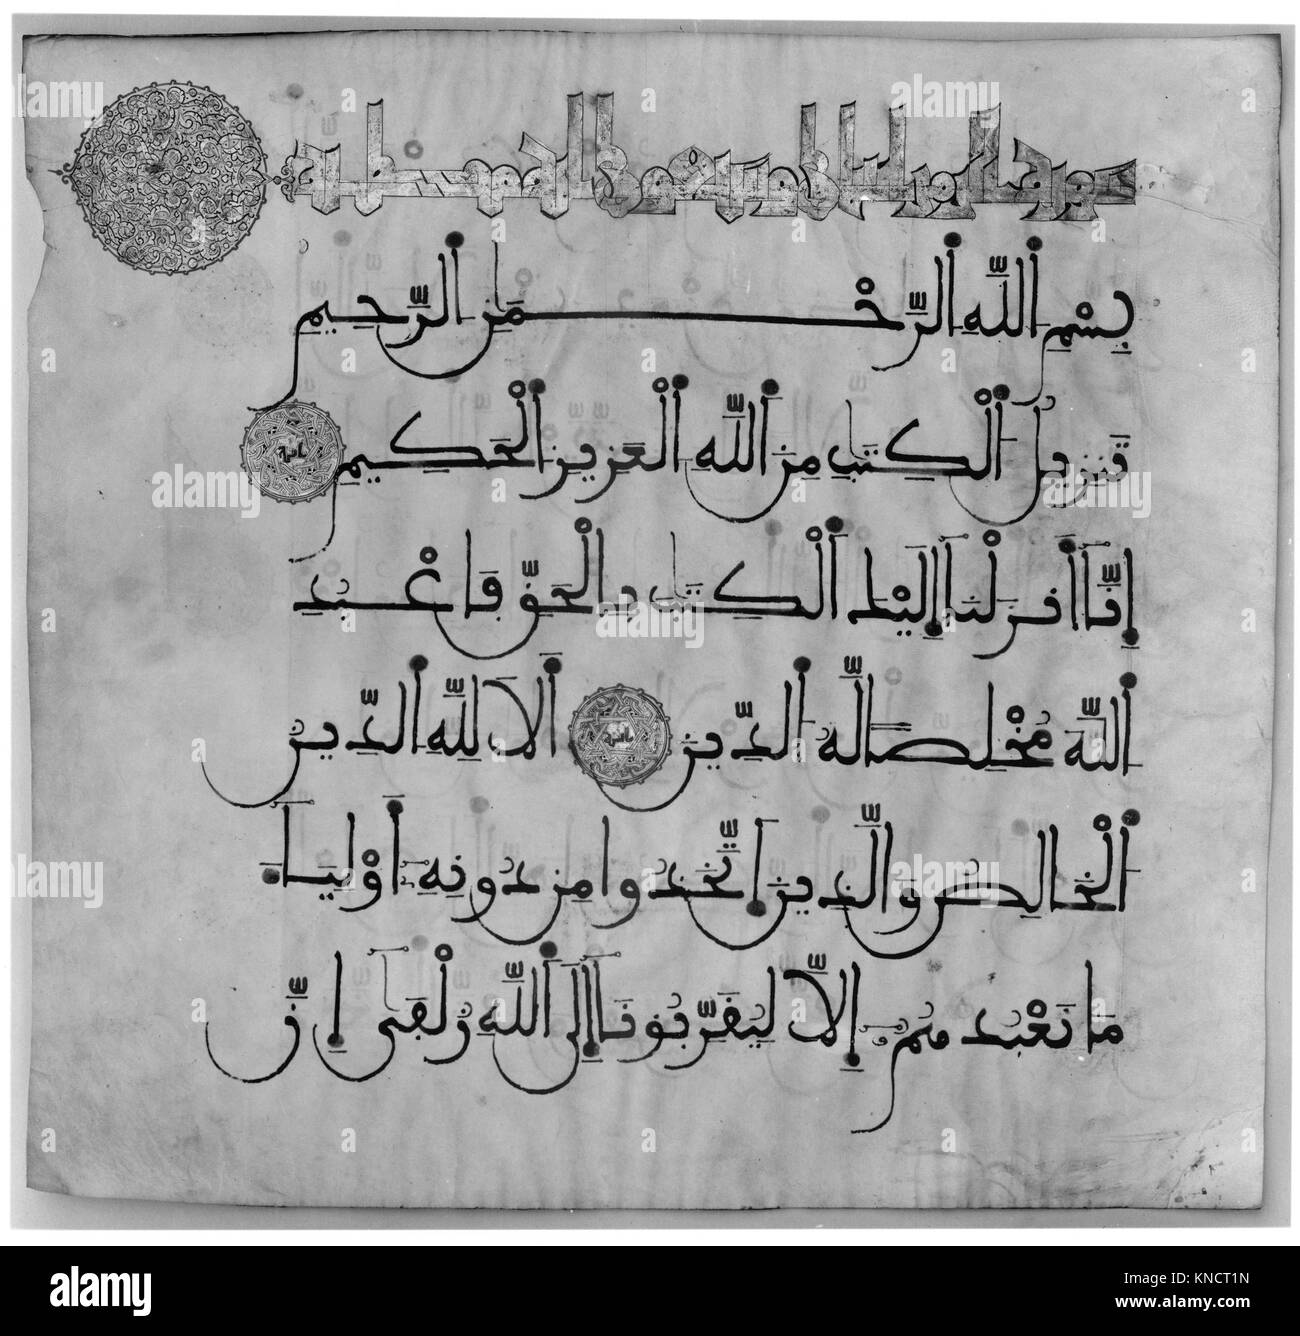 سورة الزمر
بِسْمِ اللَّهِ الرَّحْمَنِ الرَّحِيمِ
تَنزِيلُ الْكِتَبِ مِنَ اللَّهِ الْعَزِيزِ الْحَكِيمِ
إِنَّا أَنزَلْنَا إِلَيْكَ الْكِتَبَ بِالْحَقِّ فَاعْبُدِ
اللَّهَ مُخْلِصًا لَّهُ الدِّينَ أَلَا لِلَّهِ الدِّينُ
الْخَالِصُ وَالَّذِينَ اتَّخَذُوا مِن دُونِهِ أَوْلِيَاءَ
مَا نَعْبُدُهُمْ إِلَّا لِيُقَرِّبُونَا إِلَى اللَّهِ زُلْفَى إِنَّ
alamy
Image ID: KNCT1N
www.alamy.com